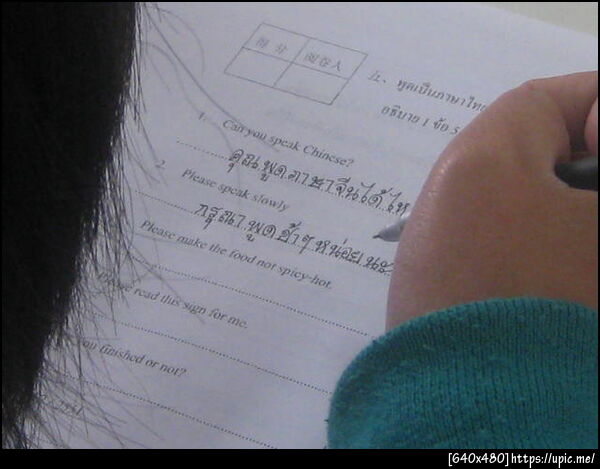 得 分 阅卷人
五、 พูดเป็นภาษาไทย
อธิบาย 1 ข้อ 5
1. Can you speak Chinese?
คุณพูดภาษาจีนได้ไห
2. Please speak slowly
กรุณาพูดช้าๆ หน่อยนะ
Please make the food not spicy-hot.
read this sign for me.
you finished or not?
[640x480]https://upic.me/